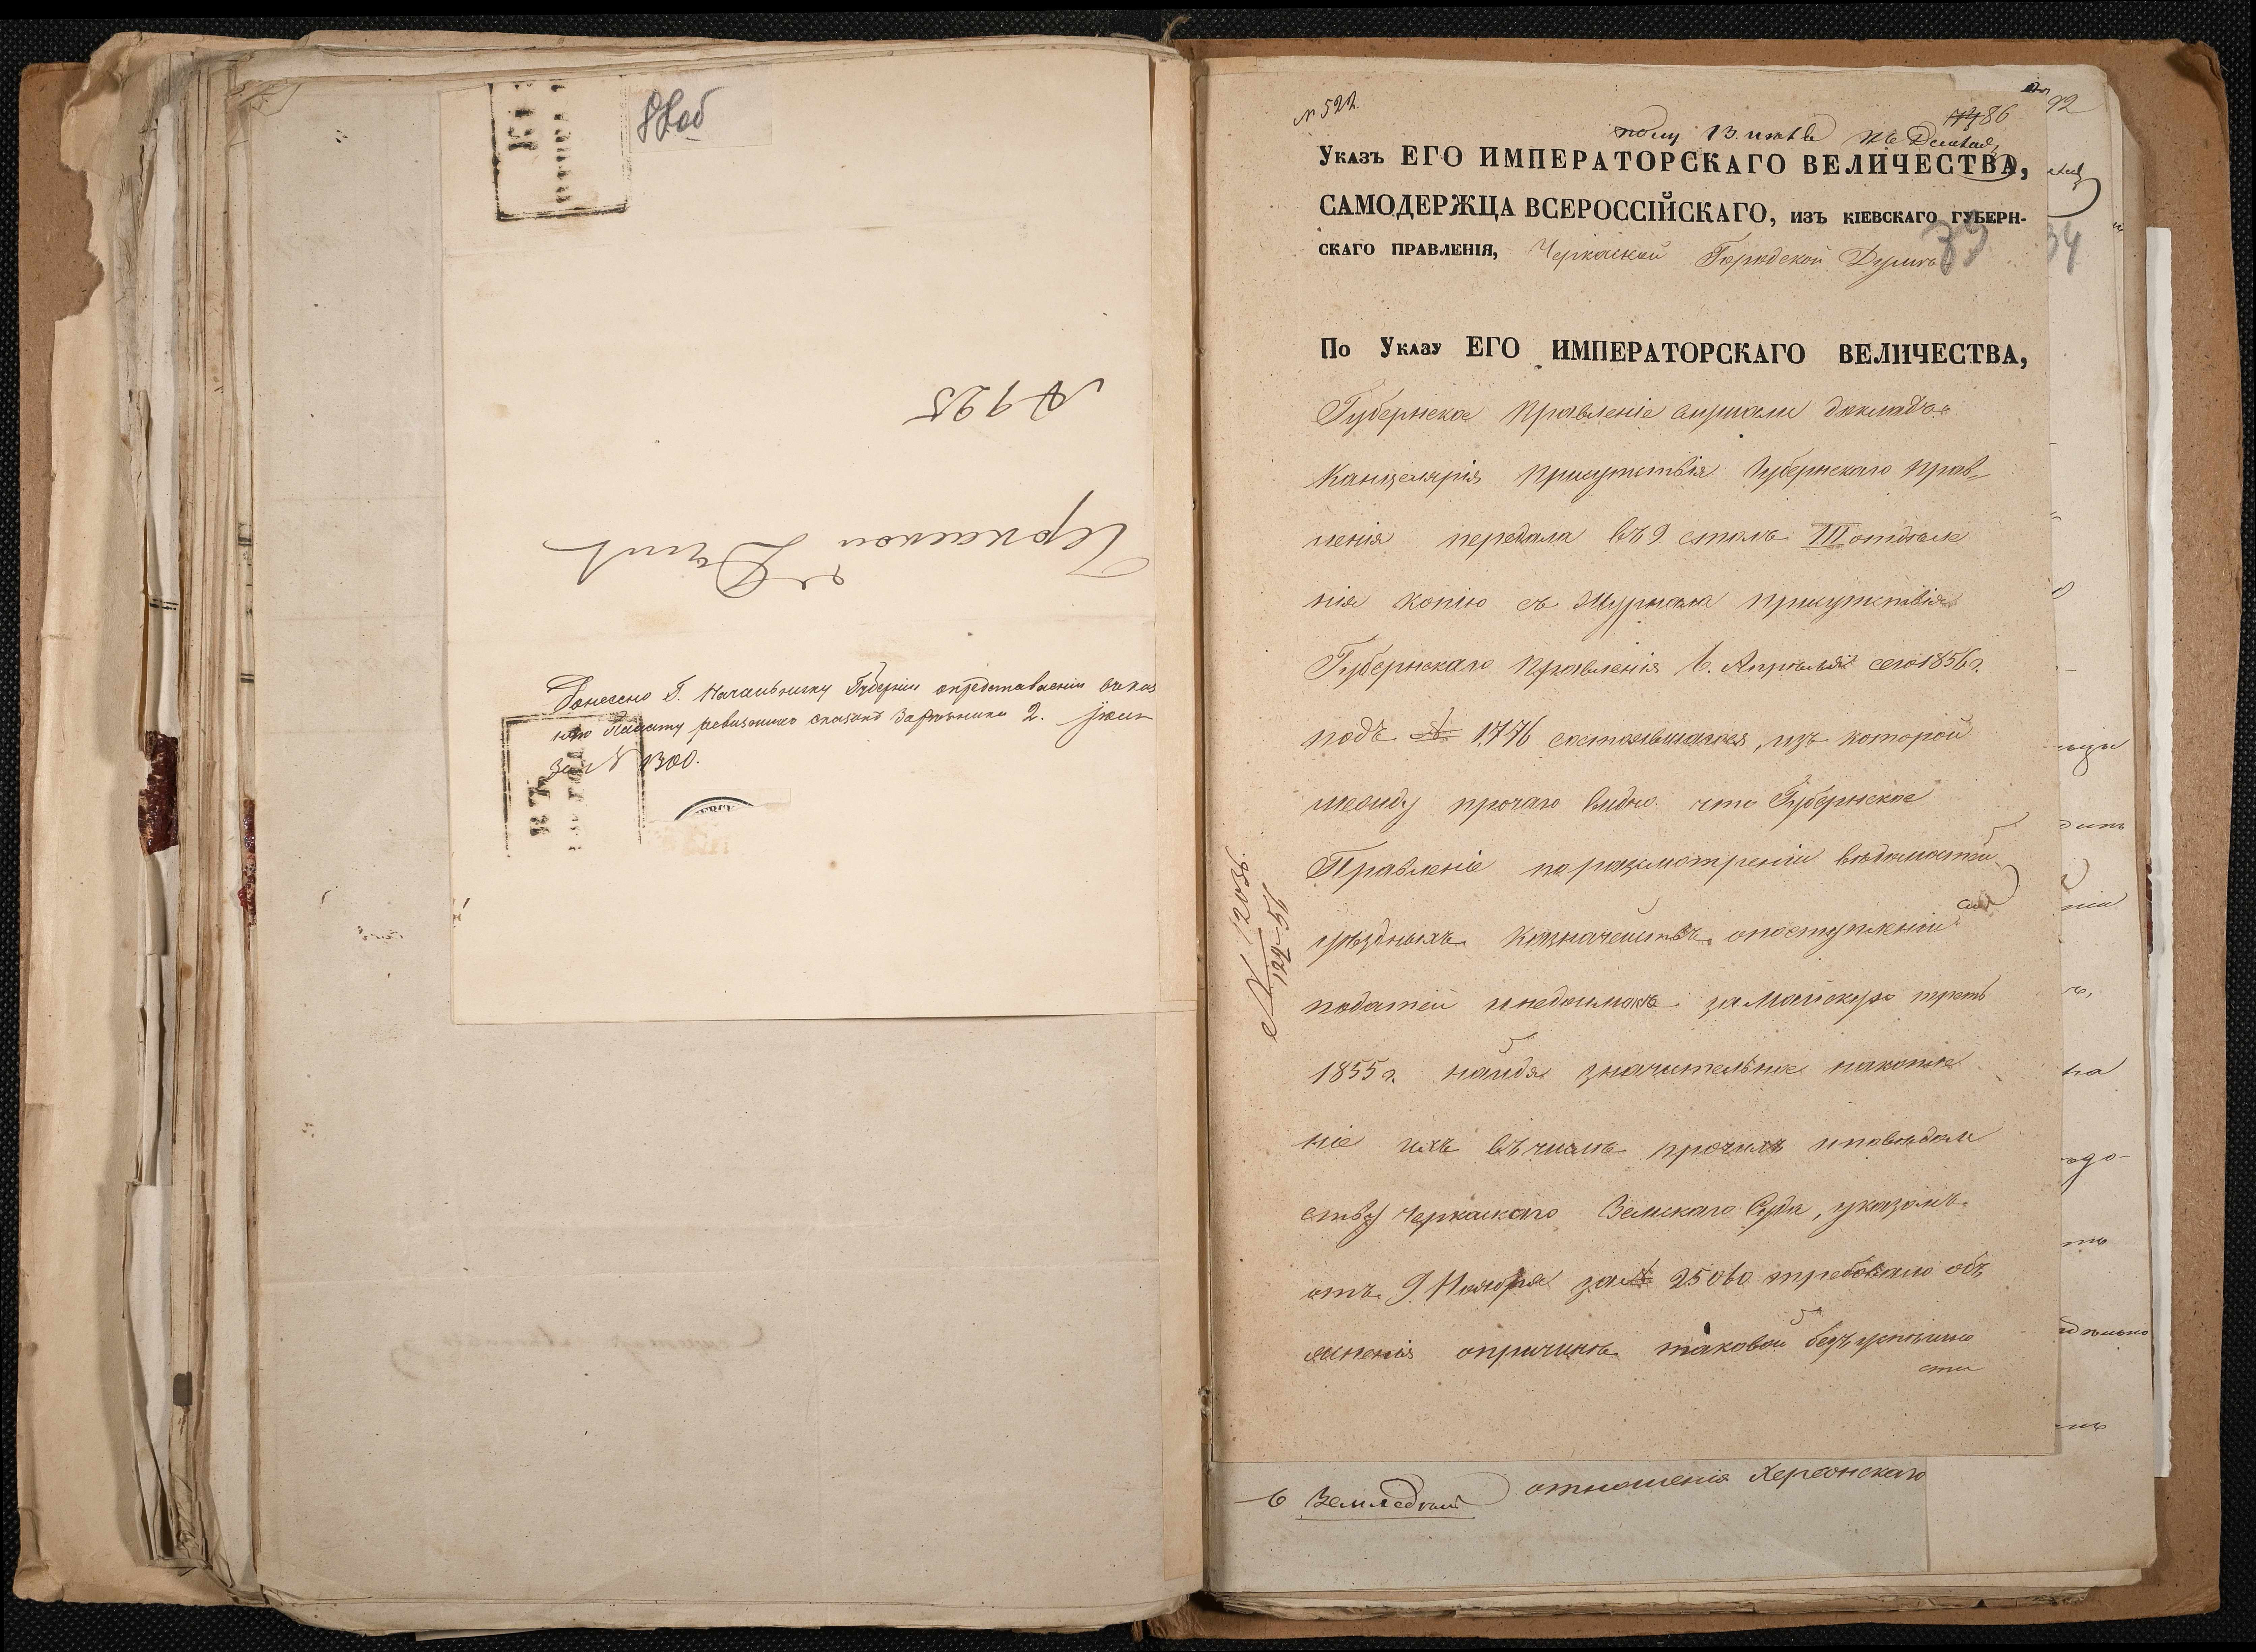 88об
№ 925
Черкаской Думѣ
Донесено Г. Начальнику Губерніи опредставленіи
Палату ревизскихъ сказокъ 2.
За № 1300.
№ 522.
86
92
получ 13. 
Указъ ЕГО ИМПЕРАТОРСКАГО ВЕЛИЧЕСТВА,
САМОДЕРЖЦА ВСЕРОССІЙСКАГО, изъ кіевскаго губерн-
скаго правленія, Черкаской Городской Думѣ
39
34
По Указу ЕГО ИМПЕРАТОРСКАГО ВЕЛИЧЕСТВА,
Губернское Правленіе слушали докладъ.
Канцелярія Присутствія Губернскаго Прав-
ленія передала въ 9. столъ III отдѣле
нія копію съ Журнала присутствія
Губернскаго Правленія 6. Апрѣля сего 1856 г.
подъ № 1776 состоявшагося, изъ которой
между прочаго видно. что Губернское
Правленіе поразсмотреніи вѣдомостей
уѣздныхъ Казначействъ опоступленіи
податей инедоимокъ замайскую треть
1855 г. найдя значительное накопле
ніе ихъ въ числѣ прочихъ иповѣдом
ству Черкаскаго Земскаго Суда, указомъ
отъ 9 Ноября за № 25060 требовало объ
ясненія опричинѣ таковой безъуспѣшно
сти
№ 12036.
отношенія Херсонскаго